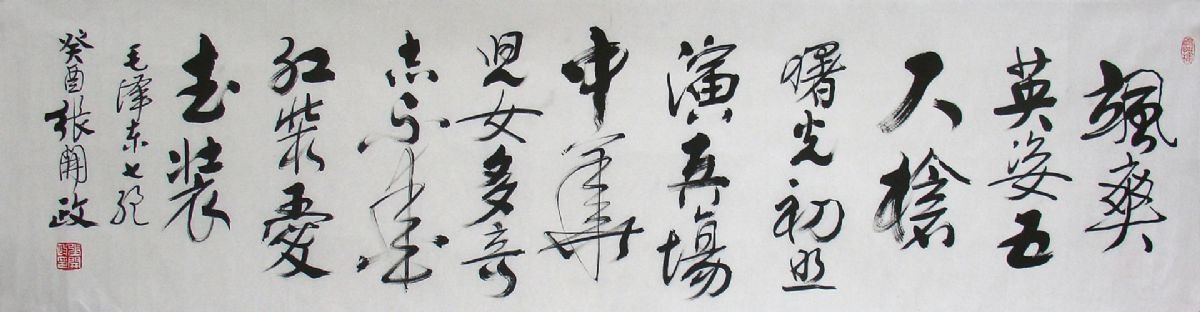 颯爽
英姿五
尺槍
曙光初照
演兵場
中華
兒女多奇
志不愛
紅裝愛
武裝
毛泽东七绝
癸酉張開政